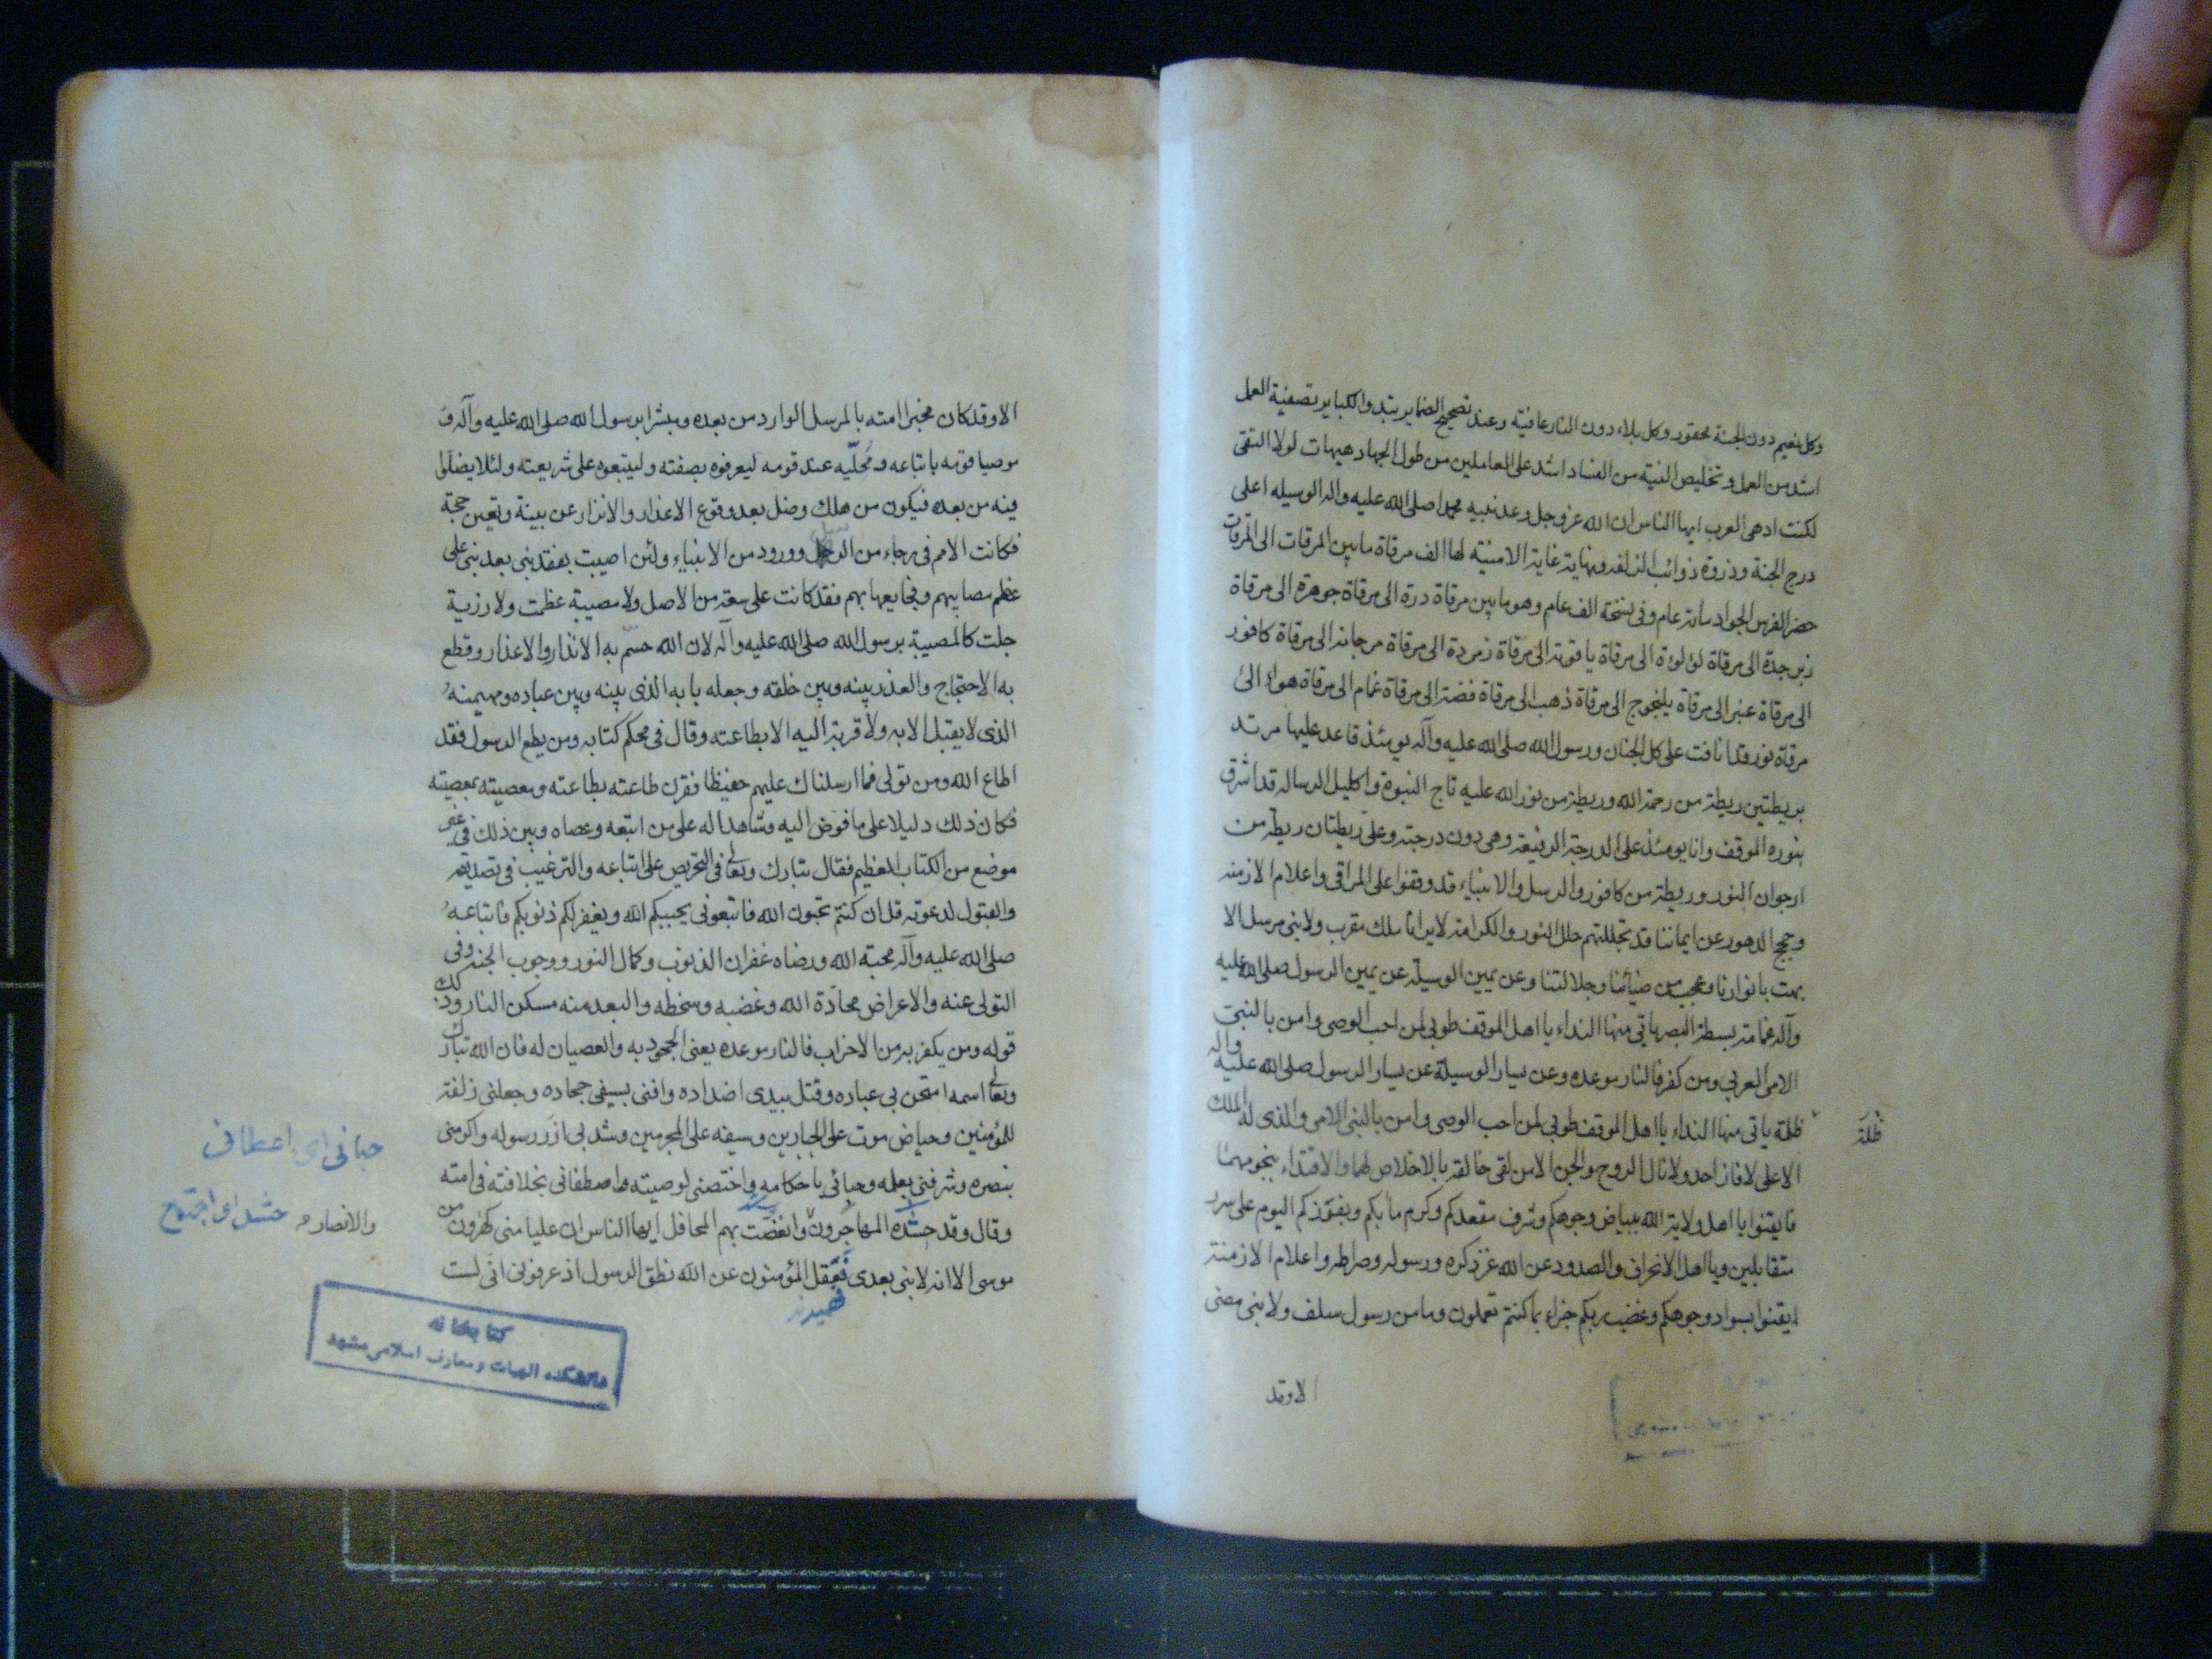 وكل نعيم دون الجنة محقور وكل بلاء دون النار عافية وعند تصحيح الضماير يبتدوا الكباير تصفية العمل
اشد من العمل وتخليص النية من الفساد اشد على العاملين من طول الجهاد هيهات لولا التقى
لكنت ادهى العرب ايها الناس ان الله عز وجل وعد نبيه محمدا صلى الله عليه واله الوسيله اعلى
درج الجنة وذروة ذوائب الزلفه ونهاية غاية الامنية لها الف مرقاة ما بين المرقات الى المرقات
حضر الفرس الجواد مائة عام وفى نسخة الف عام وهو ما بين مرقاة درة الى مرقاة جوهرة الى مرقاة
زبرجدة الى مرقاة لؤلؤة الى مرقاة ياقوتة الى مرقاة زمردة الى مرقاة مرجانة الى مرقاة كافور
الى مرقاة عنبر الى مرقاة يلنجوج الى مرقاة ذهب الى مرقاة فضة الى مرقاة غمام الى مرقاة هواء الى
مرقاة نور قد انافت على كل الجنان ورسول الله صلى الله عليه وآله يومئذ قاعد عليها مرتد
بريطتين ريطة من رحمة الله وريطة من نور الله عليه تاج النبوة واكليل الرساله قد اشرق
بنوره الموقف وانا يومئذ على الدرجة الرفيعة وهى دون درجته وعلى ريطتان ريطة من
ارجوان النور وريطة من كافور والرسل والانبياء قد وقفوا على المراقى واعلام الازمنه
وحجج الدهور عن ايماننا قد تجللتهم حلل النور والكرامة لا يرانا ملك مقرب ولا نبى مرسل الا
بهت بانوارنا وعجب من ضيائنا وجلالتنا وعن يمين الوسيلة عن يمين الرسول صلى الله عليه
وآله غمامة بسطة البصر ياتى منها النداء يا اهل الموقف طوبى لمن احب الوصى وامن بالنبى
الامى العربى ومن كفر فالنار موعده وعن يسار الوسيلة عن يسار الرسول صلى الله عليه واله
ظلة ياتى منها النداء يا اهل الموقف طوبى لمن احب الوصى وامن بالنبى الامى والذى له الملك
ظلة
الاعلى لا فاز احد ولا نال الروح والجن الا من لقى خالقه بالاخلاص لهما والاقتداء بنجومهما
فايقنوا يا اهل ولاية الله ببياض وجوهكم وشرف مقعدكم وكرم مأبكم وبفوزكم اليوم على سرر
متقابلين ويا اهل الانحراف والصدود عن الله عز ذكره ورسوله وصراطه واعلام الازمنة
ايقنوا بسواد وجوهكم وغضب ربكم جزاء بما كنتم تعملون وما من رسول سلف ولا نبى مضى
الا وقد
الا وقد كان مخبرا امته بالمرسل الوارد من بعده ومبشرا برسول الله صلى الله عليه وآله و
موصيا قومه باتباعه ومُحلّيه عند قومه ليعرفوه بصفته وليتبعوه على شريعته ولئلا يضلوا
فيه من بعده فيكون من هلك وضل بعد وقوع الاعذار والانذار عن بينة وتعيين حجة
فكانت الامم فى رجاء من الرسل وورود من الانبياء ولئن اصيبت بفقد نبى بعد نبى على
عظم مصايبهم وفجايعها بهم فقد كانت على سعة من الاصل ولا مصيبة عظمت ولا رزية
جلت كالمصيبة برسول الله صلى الله عليه وآله لان الله حسم به الانذار والاعذار وقطع
به الاحتجاج والعذر بينه وبين خلقه وجعله بابه الذى بينه وبين عباده ومهيمنه
الذى لا يقبل الا به ولا قربة اليه الا بطاعته وقال فى محكم كتابه ومن يطع الرسول فقد
اطاع الله ومن تولى فما ارسلناك عليهم حفيظا فقرن طاعته بطاعته ومعصيته بمعصيته
فكان ذلك دليلا على ما فوض اليه وشاهدا له على من اتبعه وعصاه وبين ذلك فى غير
موضع من الكتاب العظيم فقال تبارك وتعالى فى التحريص على اتباعه والترغيب فى تصديقه
والقبول لدعوته قل ان كنتم تحبون الله فاتبعونى يحببكم الله ويغفر لكم ذنوبكم فاتباعه
صلى الله عليه وآله محبة الله ورضاه غفران الذنوب وكمال النور ووجوب الجنه وفى
التولى عنه والاعراض محادّة الله وغضبه وسخطه والبعد منه مسكن النار وذلك
قوله ومن يكفر به من الاحزاب فالنار موعده يعنى الجحود به والعصيان له فان الله تبارك
وتعالى اسمه امتحن بى عباده وقتل بيدى اضداده وافنى بسيفى جحاده وجعلنى زلفة
للمؤمنين وحياض موت على الجبارين وسيفه على المجرمين وشد بى ازر رسوله واكرمنى
بنصره وشرفنى بعلمه وحبانى باحكامه واختصنى لوصيته واصطفانى بخلافته فى امته
وقال وقد حشده المهاجرون وانغصت بهم المحافل ايها الناس ان عليا منى كهرون من
موسى الا انه لا نبى بعدى فعقل المؤمنون عن الله نطق الرسول اذ عرفونى انى لست
حبانى اى اعطانى
والانصار و
حشد اى اجتمع
فهميدند
كتابخانه
دانشكده الهيات و معارف اسلامى مشهد